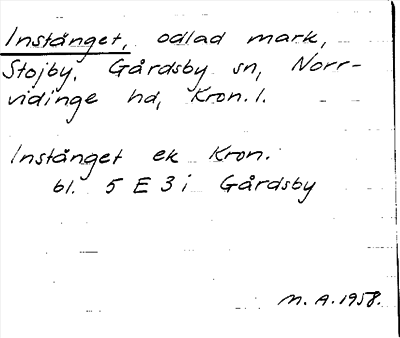 Instänget, odlad mark,
Stojby, Gårdsby sn, Norr-
vidinge hd, Kron. l.
Instänget ek Kron.
bl. 5 E 3 i Gårdsby
M. A. 1958.